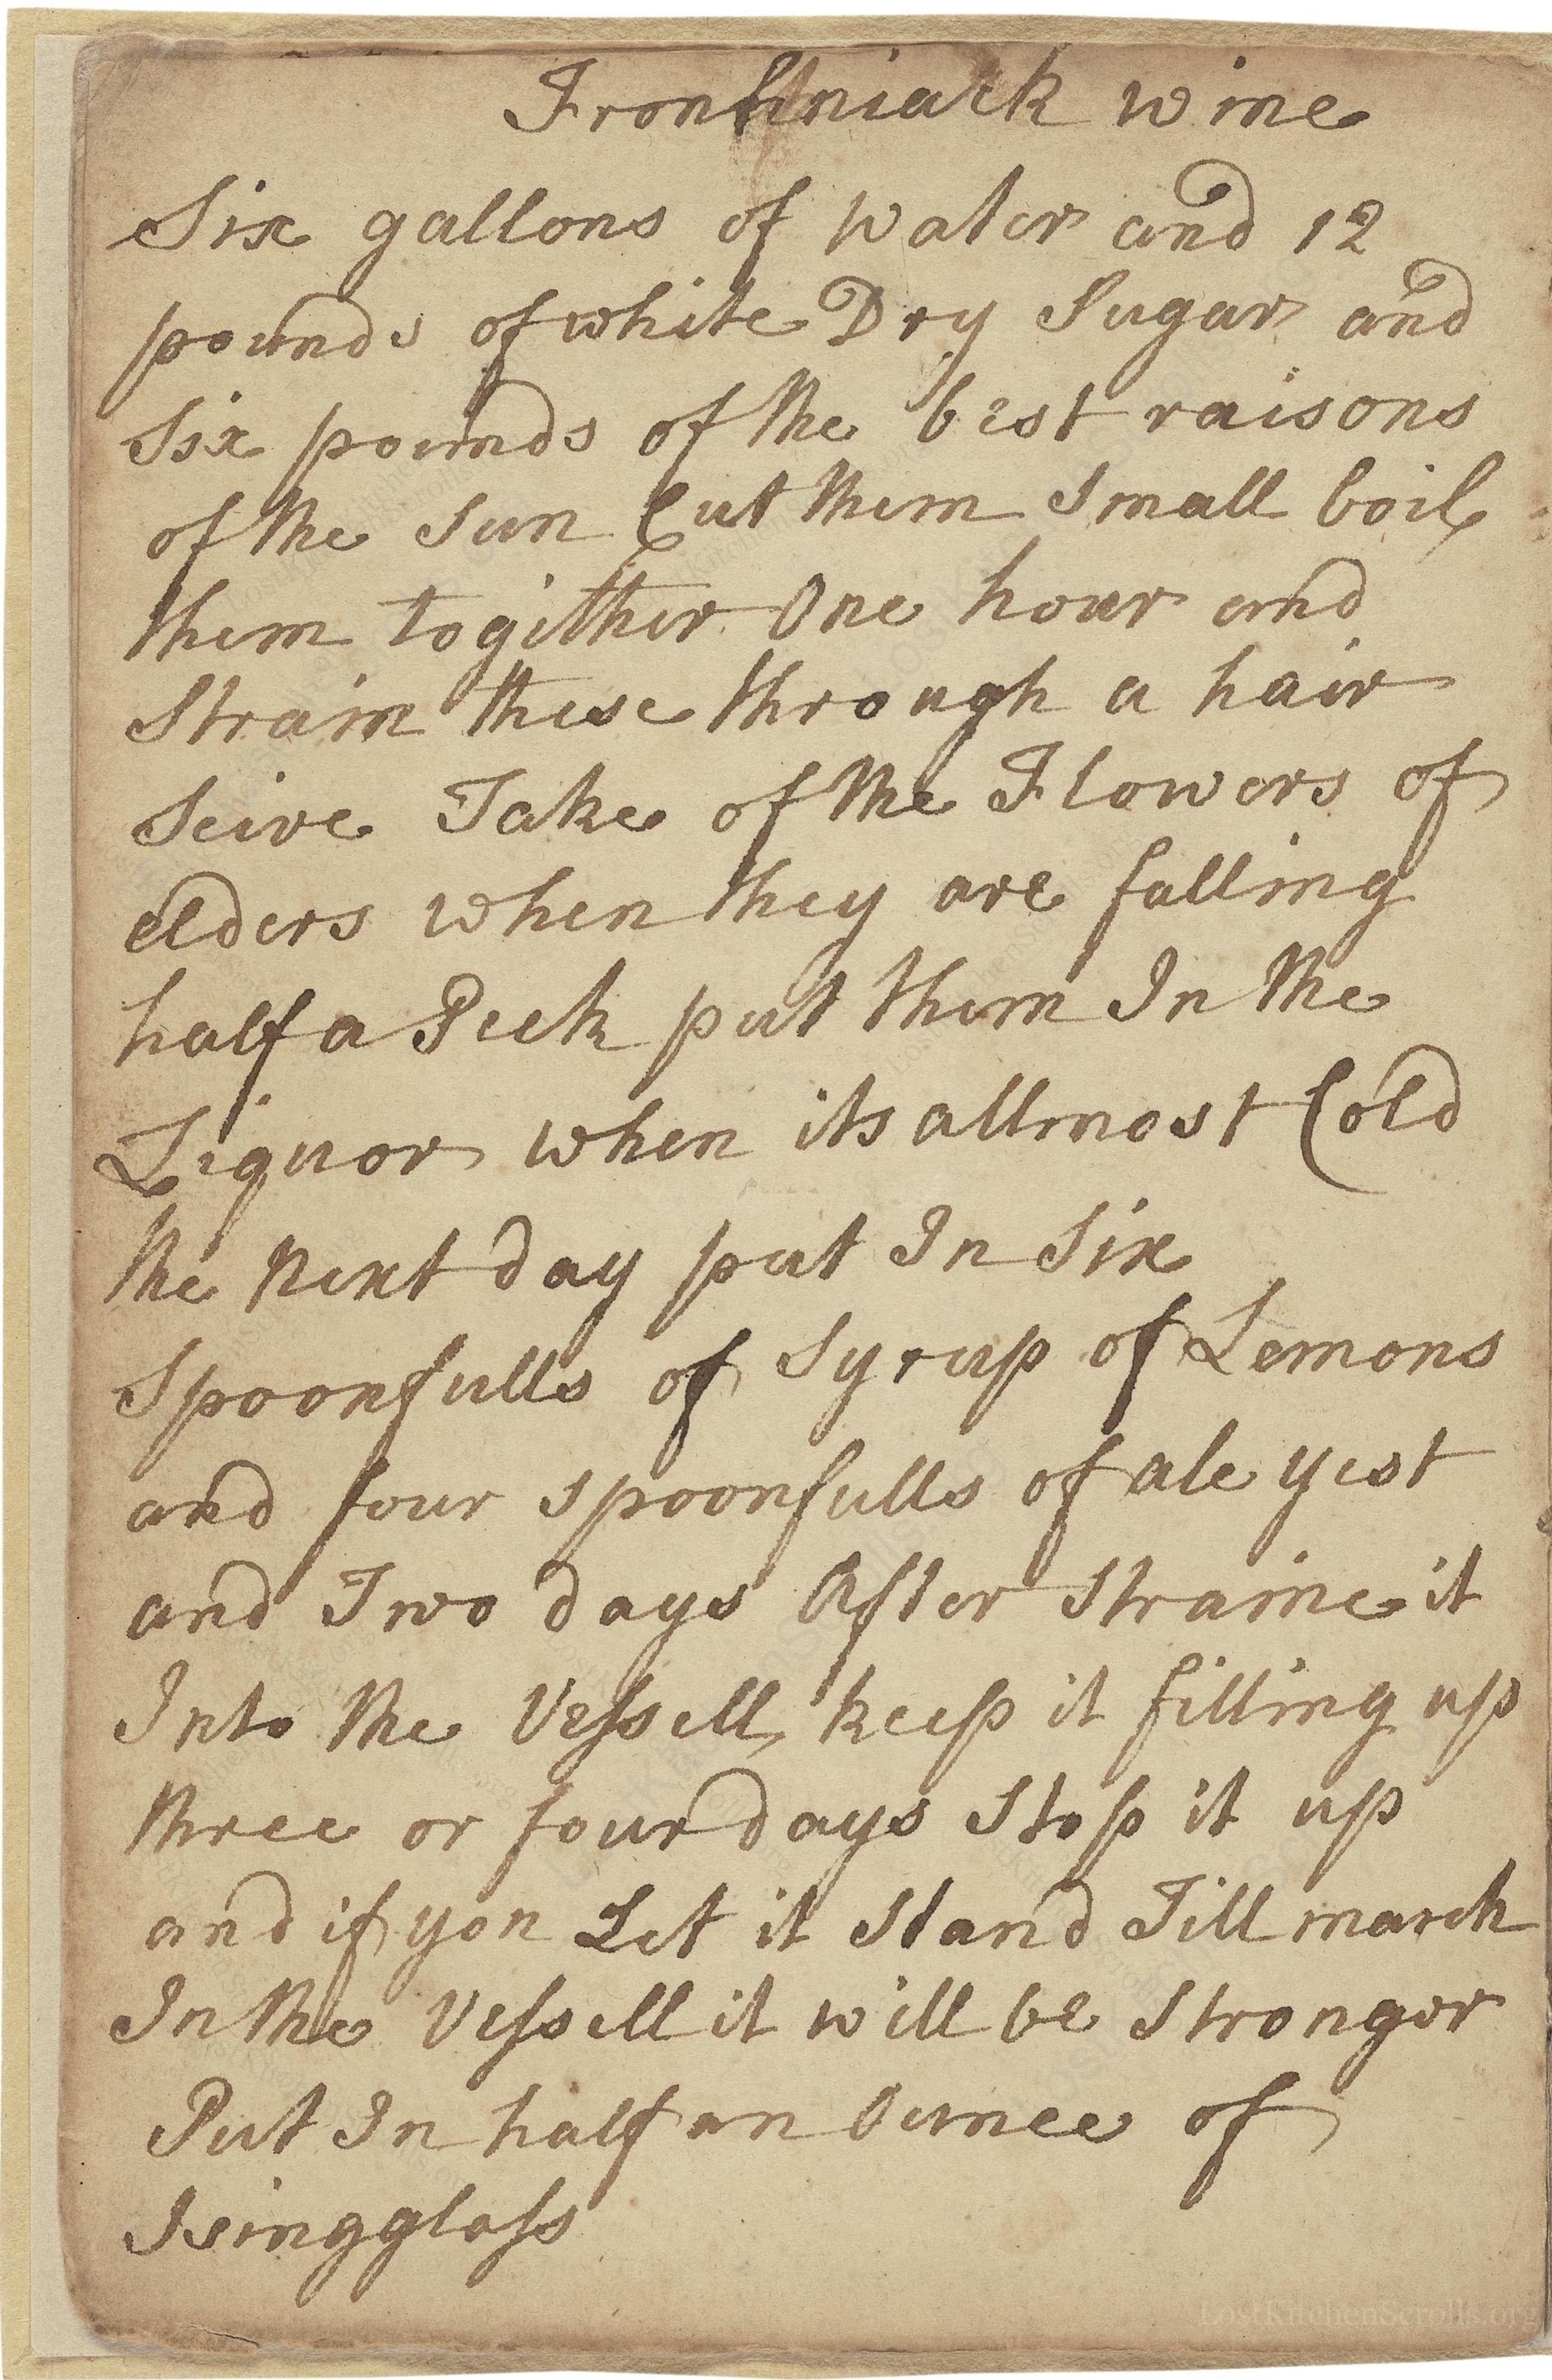 Frontiniack wine
Six gallons of water and 12
pounds of white Dry Sugar and
Six pounds of the best raisons
of the Sun Cut them Small boil
them togither One hour and
Strain these through a hair
Seive Take of the Flowers of
elders when they are falling
half a Peck put them In the
Liquor when its allmost Cold
the next day put In Six
Spoonfulls of Syrup of Lemons
and four spoonfulls of ale yest
and Two days After Straine it
Into the Veſsell, keep it filling up
three or four days Stop it up
and if you Let it Stand Till march
In the Veſsell it will be Stronger
Put In half an Ounce of
Isingglaſs
LostKitchenScrolls.org